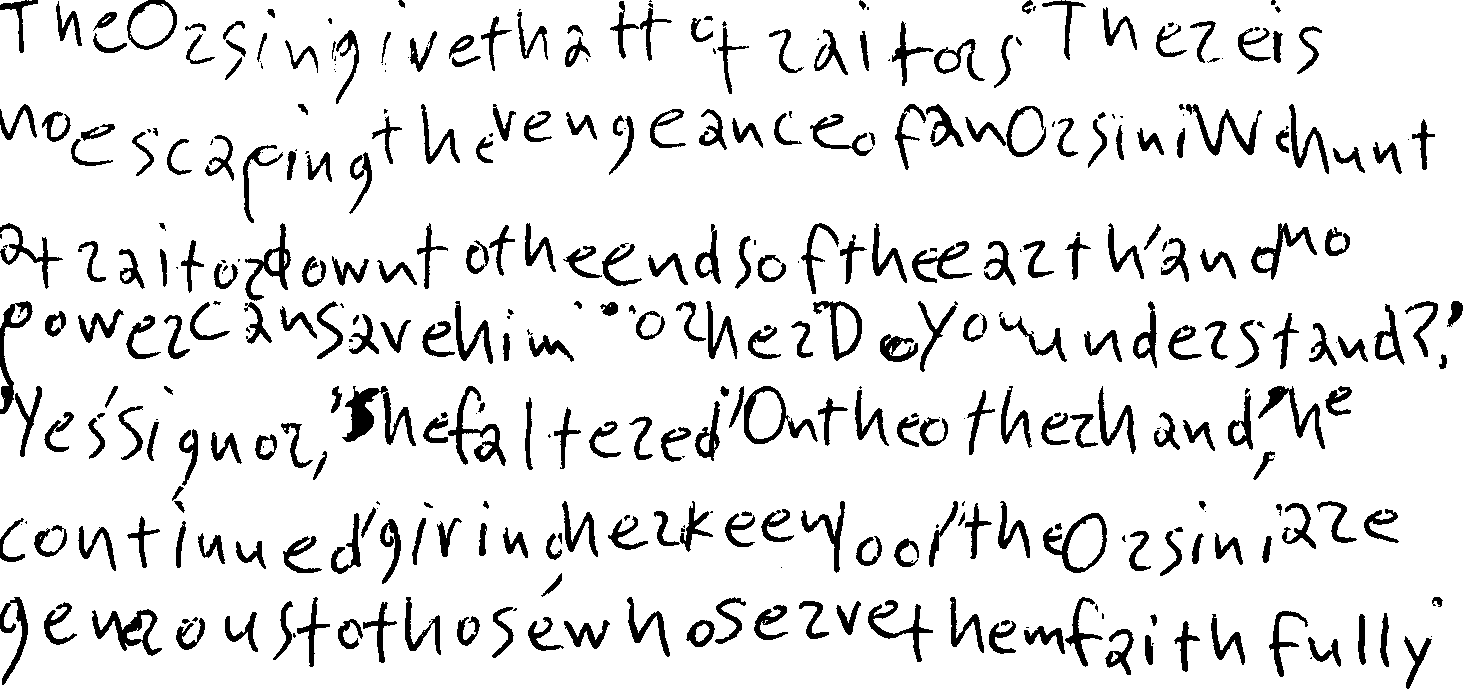 The Orsini give that to traitors. There is
no escaping the vengeance of an Orsini. We hunt
a traitor down to the ends of the earth, and no
power can save him - or her. Do you understand?"
"Yes, Signor," she faltered. "On the other hand," he
continued, giving her keen look, "the Orsini are
generous to those who serve them faithfully.